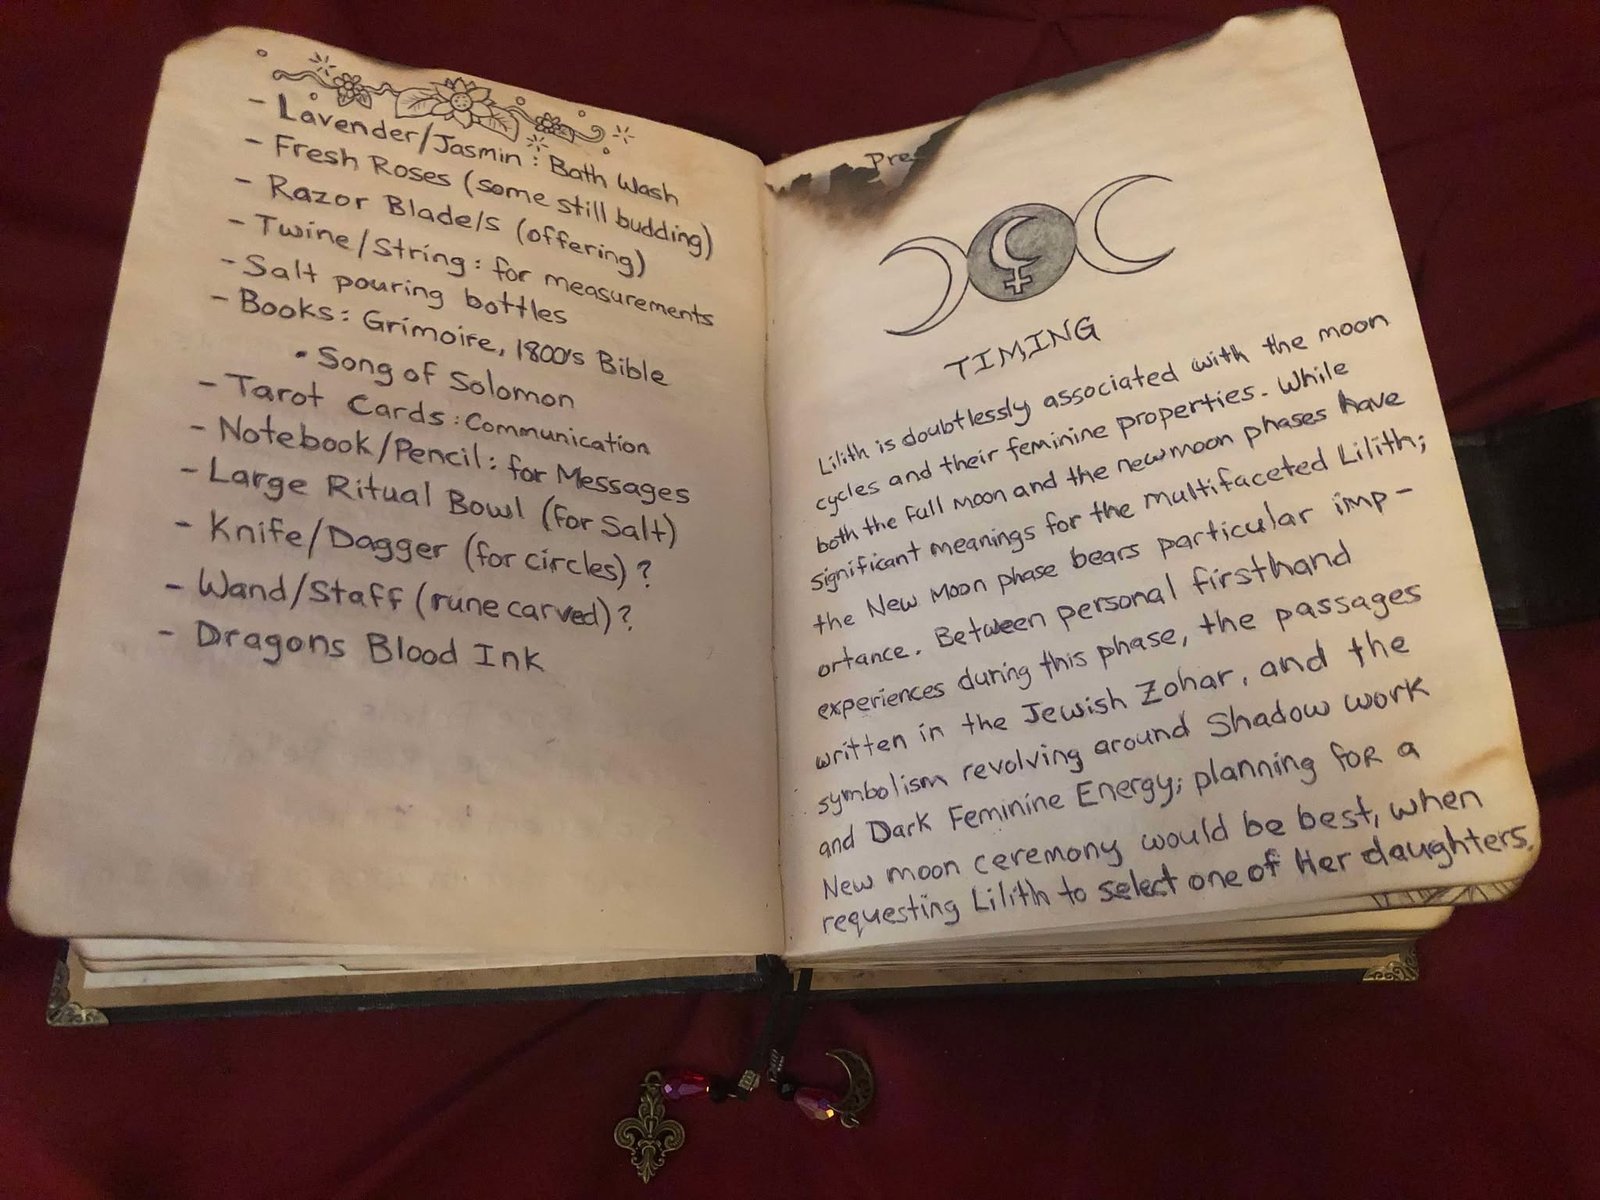 - Lavender/Jasmin: Bath Wash
- Fresh Roses (some still budding)
- Razor Blade/s (offering)
- Twine/String: for measurements
- Salt pouring bottles
- Books: Grimoire, 1800's Bible
• Song of Solomon
- Tarot Cards: Communication
- Notebook/Pencil: for Messages
- Large Ritual Bowl (for Salt)
- Knife/Dagger (for circles)?
- Wand/Staff (rune carved)?
- Dragons Blood Ink
Pre
TIMING
Lilith is doubtlessly associated with the moon
cycles and their feminine properties. While
both the full moon and the new moon phases have
significant meanings for the multifaceted Lilith;
the New Moon phase bears particular imp-
ortance. Between personal firsthand
experiences during this phase, the passages
written in the Jewish Zohar, and the
symbolism revolving around Shadow work
and Dark Feminine Energy; planning for a
New moon ceremony would be best, when
requesting Lilith to select one of Her daughters.